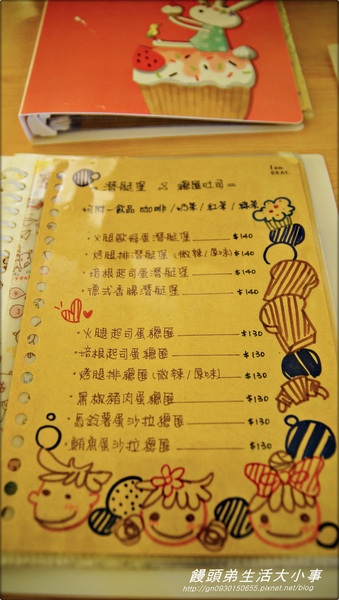 潛艇堡 & 貓匯吐司
附一飲品 咖啡/奶茶/紅茶/綠茶
·火腿歐姆蛋潛艇堡 $140
·烤腿排潛艇堡(微辣/原味) $140
·培根起司蛋潛艇堡 $140
·德式香腸潛艇堡 $140
·火腿起司蛋貓匯 $130
·培根起司蛋貓匯 $130
·烤腿排貓匯(微辣/原味) $130
·黑椒豬肉蛋貓匯 $130
·馬鈴薯蛋沙拉貓匯 $130
·鮪魚蛋沙拉貓匯 $130
饅頭弟生活大小事
http://gn0930150655.pixnet.net/blog